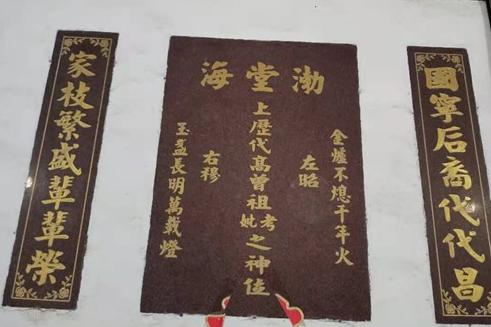 國寧后裔代代昌
渤海堂
金爐不熄千年火
左昭
上歷代高曾祖考妣之神位
右穆
玉盞長明萬載燈
家枝繁盛輩輩榮